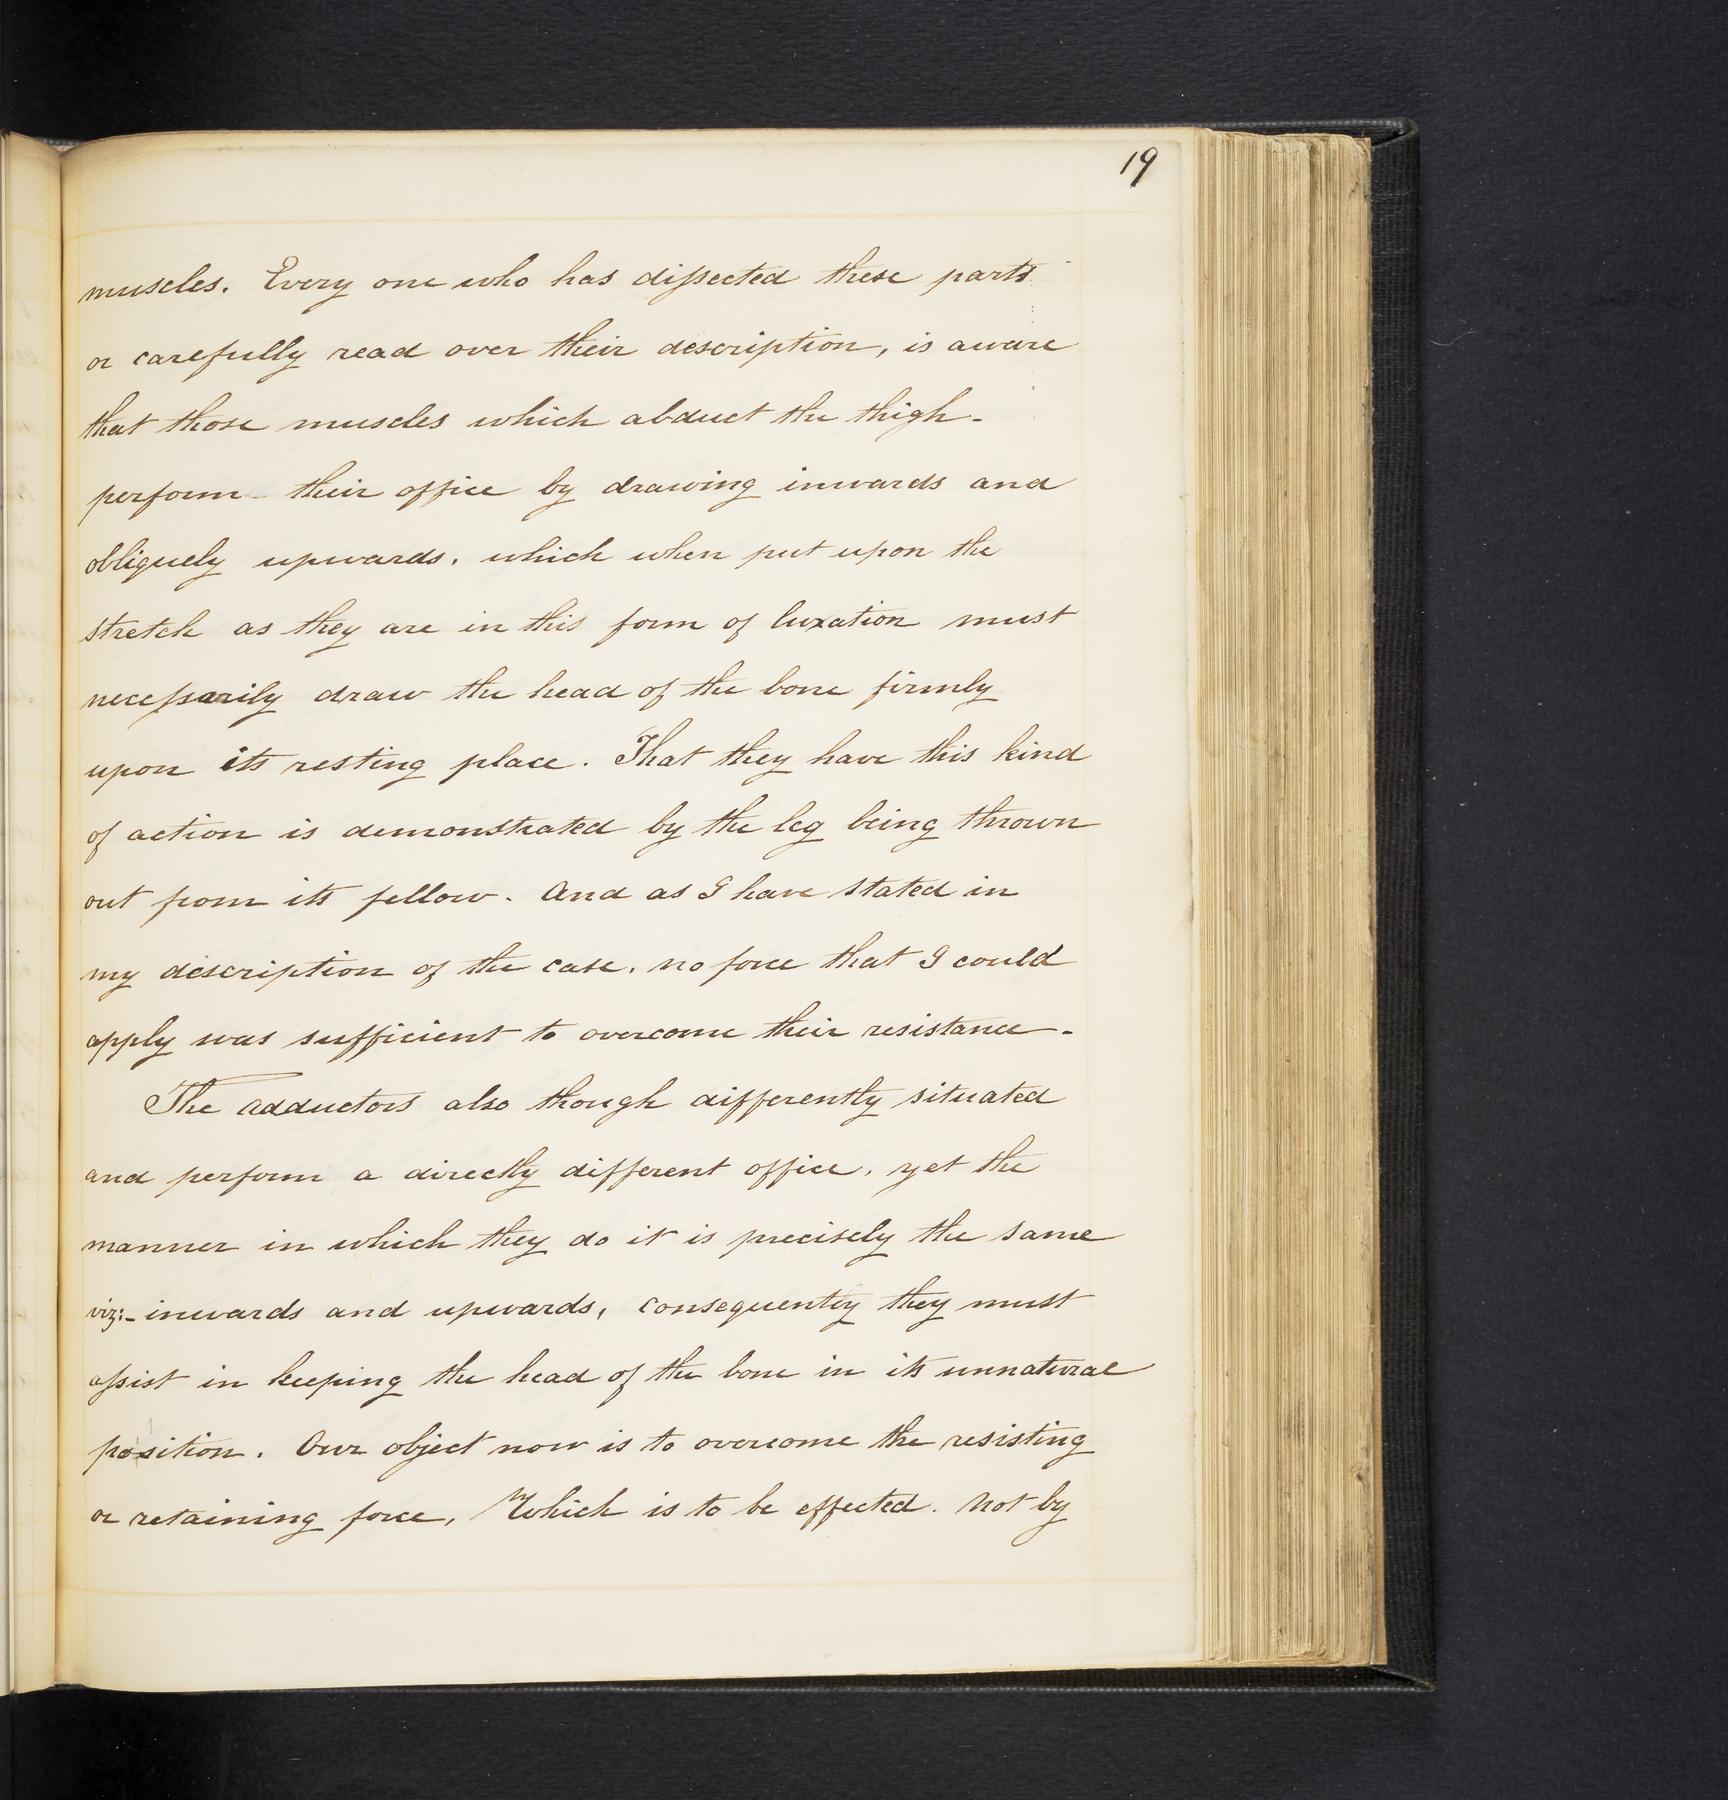 19
muscles. Every one who has dissected these parts
or carefully read over their description, is aware
that those muscles which abduct the thigh -
perform their office by drawing inwards and
obliquely upwards, which when put upon the
stretch as they are in this form of luxation must
necessarily draw the head of the bone firmly
upon its resting place. That they have this kind
of action is demonstrated by the leg being thrown
out from its fellow. And as I have stated in
my description of the case, no force that I could
apply was sufficient to overcome their resistance -
The adductors also though differently situated
and perform a directly different office, yet the
manner in which they do it is precisely the same
viz:- inwards and upwards, consequently they must
assist in keeping the head of the bone in its unnatural
position. Our object now is to overcome the resisting
or retaining force, Which is to be effected. Not by